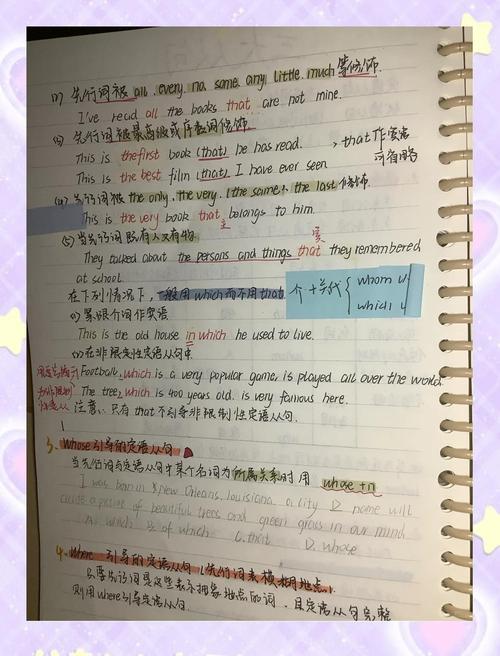 (2) 先行词被 all. every. no. some. any. little. much 等修饰.
I've read all the books that are not mine.
(3) 先行词被最高级或序数词修饰
This is the first book (that) he has read.
This is the best film (that) I have ever seen.
→ that 作宾语
可省略
(4) 先行词被 the only. the very. the same. the last 修饰.
This is the very book that belongs to him.
主
(5) 当先行词既有人又有物.
宾
They talked about the persons and things that they remembered
at school.
在下列情况下, 一般用 which 而不用 that.
介 + 关代 { whom
which
(1) 紧跟介词作宾语
This is the old house in which he used to live.
(2) 在非限定性定语从句中
Football, which is a very popular game, is played all over the world.
The tree, which is 400 years old. is very famous here.
注意: 只有 that 不引导非限制性定语从句.
3. whose 引导的定语从句
当先行词与定语从句中某个名词为所属关系时用 whose + n
I was born in New Orleans, Louisiana, a city D name will
create a picture of beautiful trees and green grass in our mind
A. which B. of which C. that D. whose
4. Where 引导的定语从句 (先行词表模糊地点.)
只要先行词是这些表示抽象地点的词, 且定语从句完整
则用 where 引导定语从句.